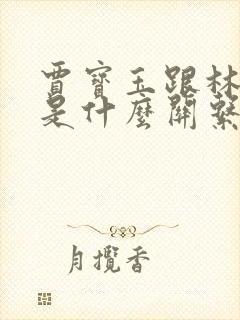 賈寶玉跟林
是什麼關繫
月攬香